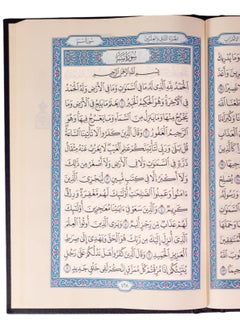 الجزء الثاني والعشرون
سورة سبإ
سُورَةُ سَبَإٍ
بِسْمِ اللَّهِ الرَّحْمَٰنِ الرَّحِيمِ
الْحَمْدُ لِلَّهِ الَّذِي لَهُ مَا فِي السَّمَٰوَٰتِ وَمَا فِي الْأَرْضِ وَلَهُ الْحَمْدُ
فِي الْآخِرَةِ وَهُوَ الْحَكِيمُ الْخَبِيرُ ١ يَعْلَمُ مَا يَلِجُ فِي الْأَرْضِ
وَمَا يَخْرُجُ مِنْهَا وَمَا يَنزِلُ مِنَ السَّمَاءِ وَمَا يَعْرُجُ فِيهَا وَهُوَ
الرَّحِيمُ الْغَفُورُ ٢ وَقَالَ الَّذِينَ كَفَرُوا لَا تَأْتِينَا السَّاعَةُ
قُلْ بَلَىٰ وَرَبِّي لَتَأْتِيَنَّكُمْ عَٰلِمِ الْغَيْبِ لَا يَعْزُبُ عَنْهُ مِثْقَالُ
ذَرَّةٍ فِي السَّمَٰوَٰتِ وَلَا فِي الْأَرْضِ وَلَا أَصْغَرُ مِن ذَٰلِكَ
وَلَا أَكْبَرُ إِلَّا فِي كِتَٰبٍ مُّبِينٍ ٣ لِيَجْزِيَ الَّذِينَ
ءَامَنُوا وَعَمِلُوا الصَّٰلِحَٰتِ أُولَٰئِكَ لَهُم مَّغْفِرَةٌ وَرِزْقٌ
كَرِيمٌ ٤ وَالَّذِينَ سَعَوْ فِي ءَايَٰتِنَا مُعَٰجِزِينَ أُولَٰئِكَ
لَهُمْ عَذَابٌ مِّن رِّجْزٍ أَلِيمٌ ٥ وَيَرَى الَّذِينَ أُوتُوا الْعِلْمَ
الَّذِي أُنزِلَ إِلَيْكَ مِن رَّبِّكَ هُوَ الْحَقَّ وَيَهْدِي إِلَىٰ صِرَٰطِ
الْعَزِيزِ الْحَمِيدِ ٦ وَقَالَ الَّذِينَ كَفَرُوا هَلْ نَدُلُّكُمْ عَلَىٰ رَجُلٍ
يُنَبِّئُكُمْ إِذَا مُزِّقْتُمْ كُلَّ مُمَزَّقٍ إِنَّكُمْ لَفِي خَلْقٍ جَدِيدٍ ٧
٤٢٨